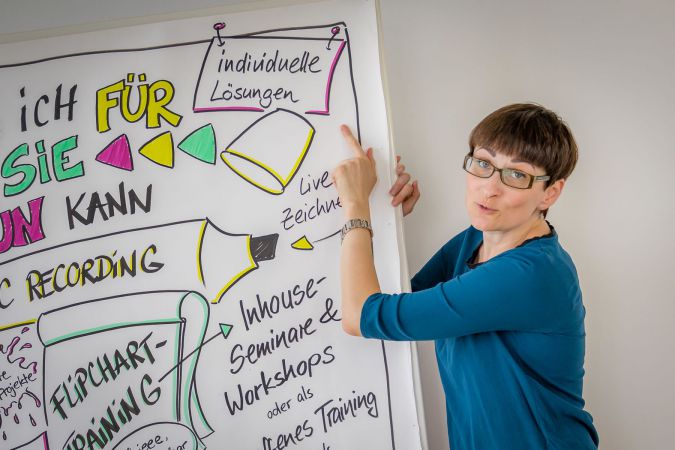 individuelle
Lösungen
iCH FÜR
SiE
KANN
Live
Zeichne
RECORDING
INHOUSE-
SEMINARE &
Workshops
oder als
FLIPCHART-
TRAINING
Training